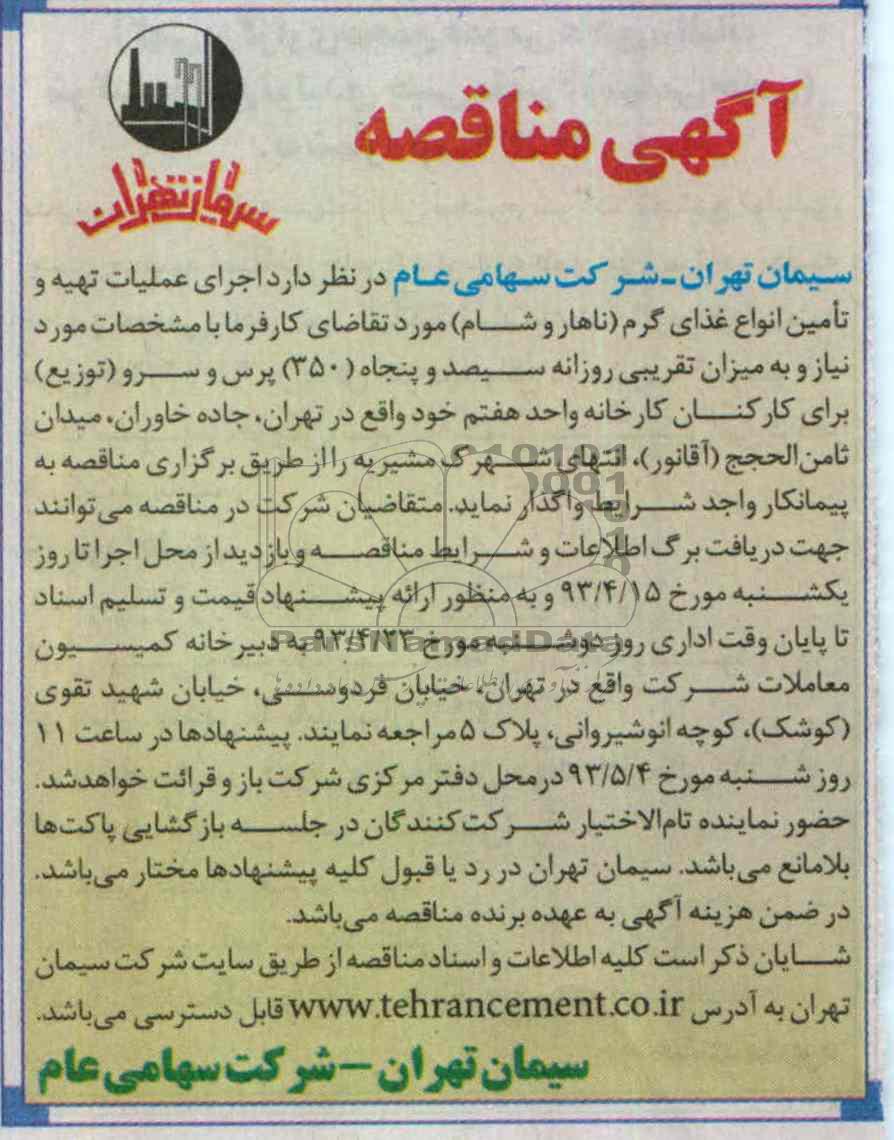 آگهی مناقصه
سیمان تهران
سیمان تهران ـ شرکت سهامی عام در نظر دارد اجرای عملیات تهیه و
تأمین انواع غذای گرم (ناهار و شام) مورد تقاضای کارفرما با مشخصات مورد
نیاز و به میزان تقریبی روزانه سیصد و پنجاه (۳۵۰) پرس و سرو (توزیع)
برای کارکنان کارخانه واحد هفتم خود واقع در تهران، جاده خاوران، میدان
ثامن‌الحجج (آقانور)، انتهای شهرک مشیریه را از طریق برگزاری مناقصه به
پیمانکار واجد شرایط واگذار نماید. متقاضیان شرکت در مناقصه می‌توانند
جهت دریافت برگ اطلاعات و شرایط مناقصه و بازدید از محل اجرا تا روز
یکشنبه مورخ ۹۳/۴/۱۵ و به منظور ارائه پیشنهاد قیمت و تسلیم اسناد
تا پایان وقت اداری روز دوشنبه مورخ ۹۳/۴/۲۳ به دبیرخانه کمیسیون
معاملات شرکت واقع در تهران، خیابان فردوسی، خیابان شهید تقوی
(کوشک)، کوچه انوشیروانی، پلاک ۵ مراجعه نمایند. پیشنهادها در ساعت ۱۱
روز شنبه مورخ ۹۳/۵/۴ در محل دفتر مرکزی شرکت باز و قرائت خواهد شد.
حضور نماینده تام‌الاختیار شرکت‌کنندگان در جلسه بازگشایی پاکت‌ها
بلامانع می‌باشد. سیمان تهران در رد یا قبول کلیه پیشنهادها مختار می‌باشد.
در ضمن هزینه آگهی به عهده برنده مناقصه می‌باشد.
شایان ذکر است کلیه اطلاعات و اسناد مناقصه از طریق سایت شرکت سیمان
تهران به آدرس www.tehrancement.co.ir قابل دسترسی می‌باشد.
سیمان تهران – شرکت سهامی عام
ParsNamadData